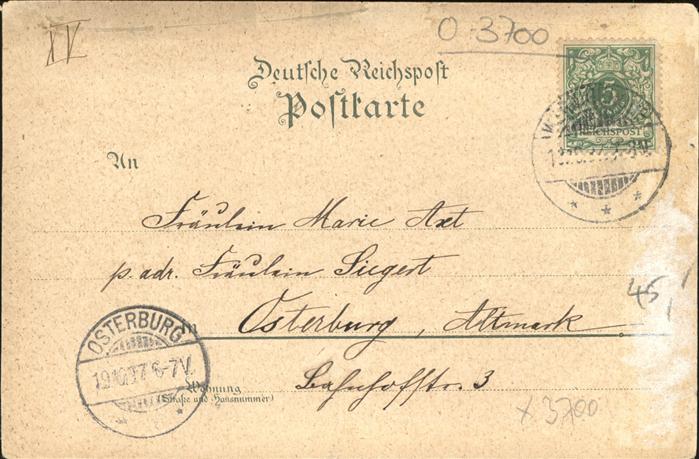 XV
O 3700
Deutsche Reichspost
Postkarte
5
REICHSPOST
An
Fräulein Marie Axt
p. adr. Fräulein Siegert
Osterburg, Altmark
Bahnhofstr. 3
Wohnung
(Straße und Hausnummer)
OSTERBURG
19.10.97 6-7V.
45
x 3700